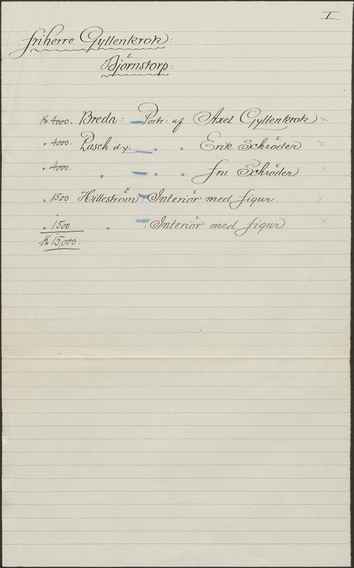 I.
Friherre Gyllenkrok
Björnstorp.
Kr 4000. Breda: Portr. af Axel Gyllenkrok
" 4000. Pasch d.y. " " Erik Schröder
" 4000. " " " Fru Schröder
" 1500 Hilleström Interiör med figur
" 1500. " Interiör med figur
Kr 15,000.